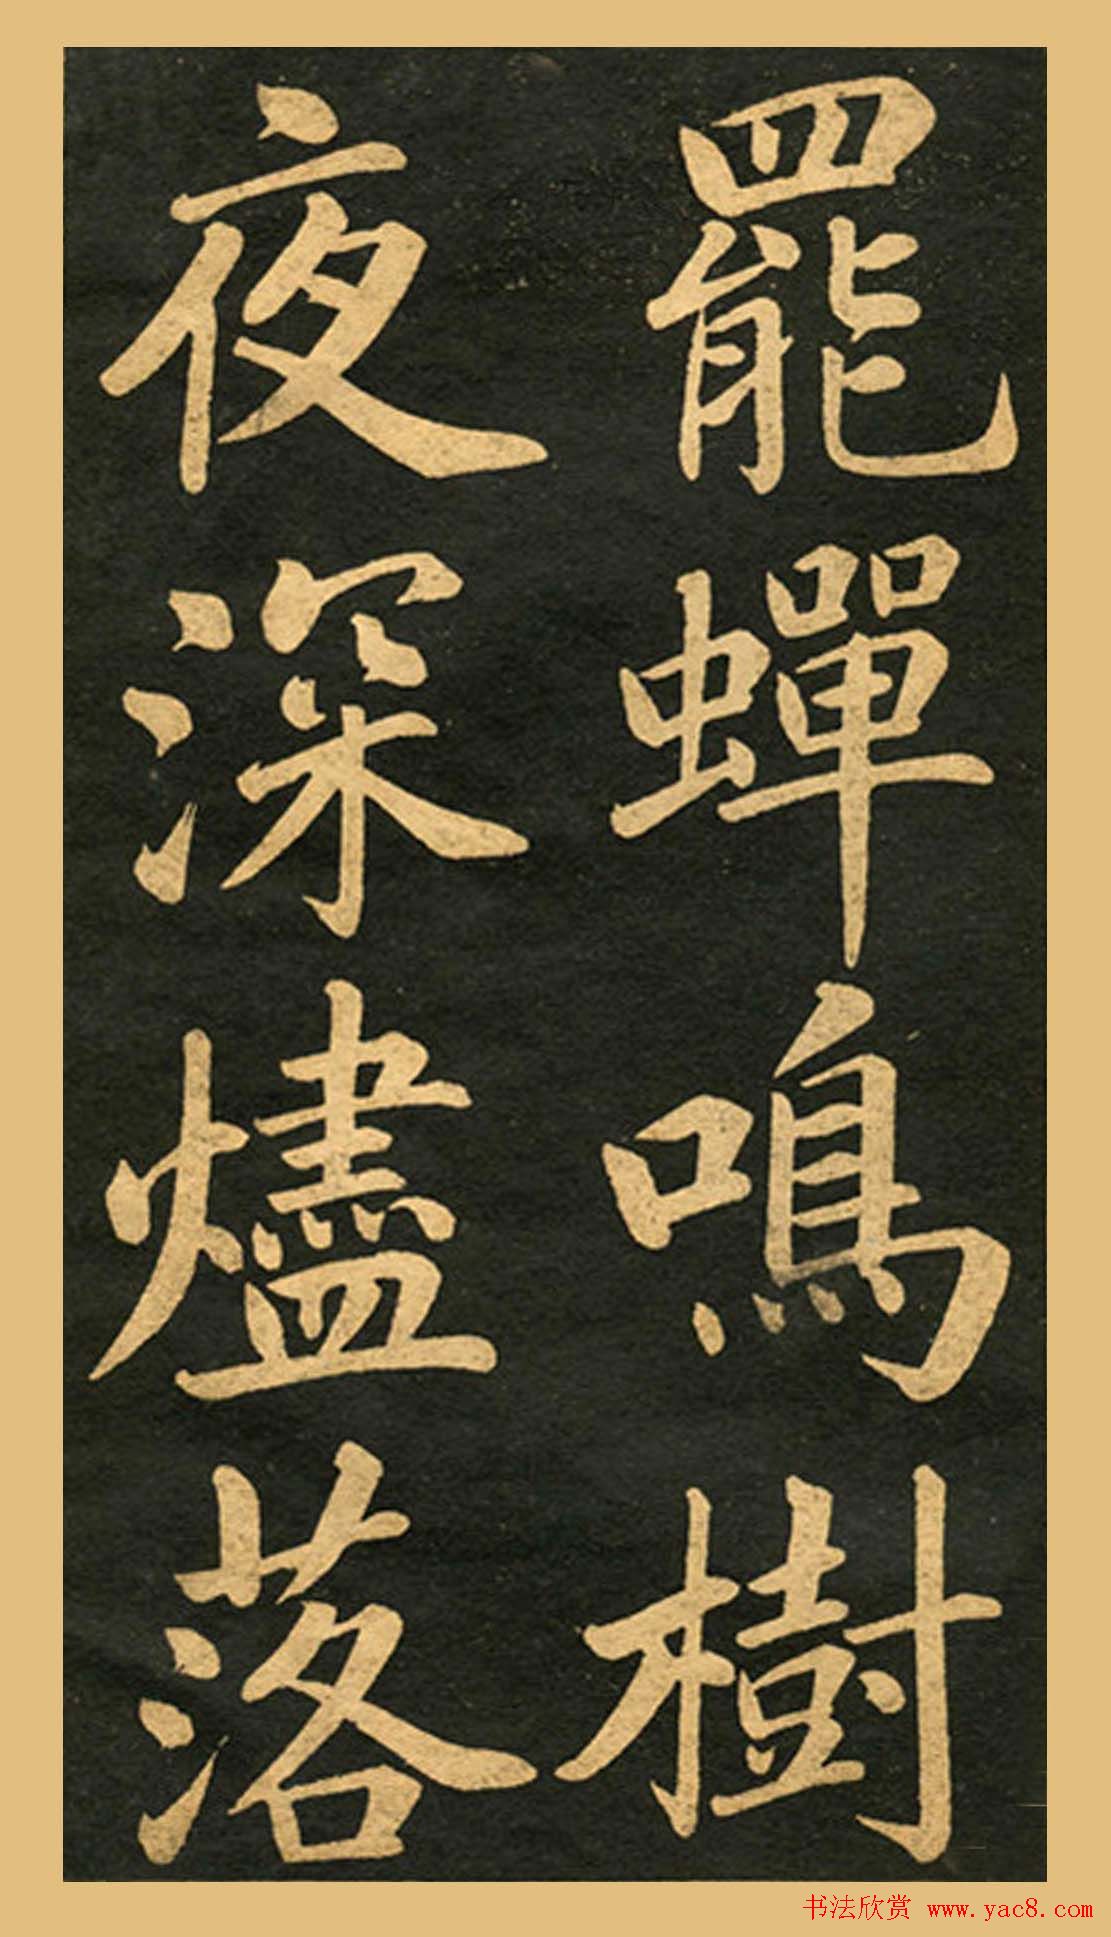 罷蟬鳴樹
夜深燼落
书法欣赏 www.yac8.com